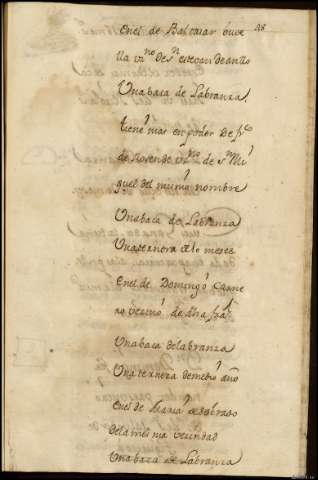 En el de Baltasar
lla vº de Sn estevan de
Una baca de Labranza
tiene mas en poder de
de vº de Sn Mi
guel del mismo nombre
Una baca de Labranza
Una ternera de meses
En el de Domingo Carne
ro vecino de dha
Una baca de labranza
Una ternera de medio año
En el de Maria de sobrado
de la misma vecindad
Una baca de Labranza